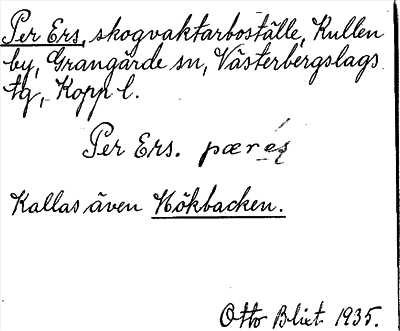 Per Ers, skogvaktarboställe, Kullen
by, Grangärde sn, Västerbergslags
tg, Kopp l.
Per Ers. pær es
Kallas även Hökbacken.
Otto Blixt 1935.